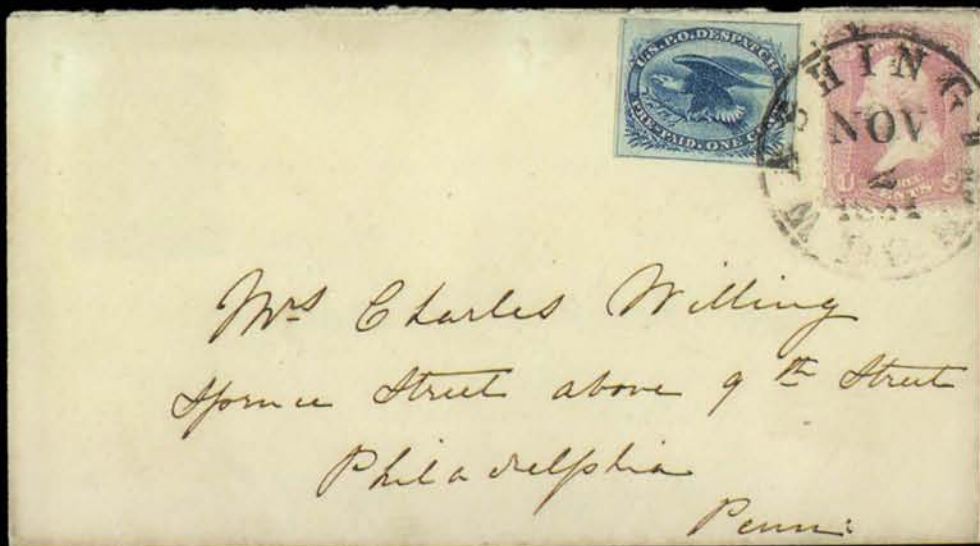 U.S.P.O.DESPATCH
PRE-PAID. ONE CENT
WASHINGT
NOV
2
1861
U S
Mrs Charles Willing
Spruce Street above 9th Street
Philadelphia
Penn: